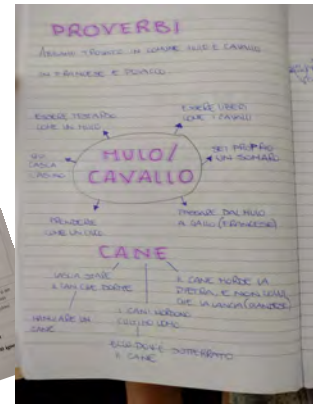 PROVERBI
ABBIAMO TROVATO IN COMUNE MULO E CAVALLO
IN FRANCESE E POLACCO
ESSERE TESTARDO
COME UN MULO
ESSERE LIBERI
COME I CAVALLI
QUI
CASCA
L'ASINO
MULO/
CAVALLO
SEI PROPRIO
UN SOMARO
PRENDERE
COME UN
PASSARE DAL MULO
A GALLO (FRANCESE)
CANE
LASCIA STARE
IL CAN CHE DORME
IL CANE MORDE LA
PIETRA E NON COLUI
CHE LA LANCIA (OLANDESE)
MANGIARE UN
CANE
I CANI MORDONO
ECCO DOV'È SOTTERRATO
IL CANE